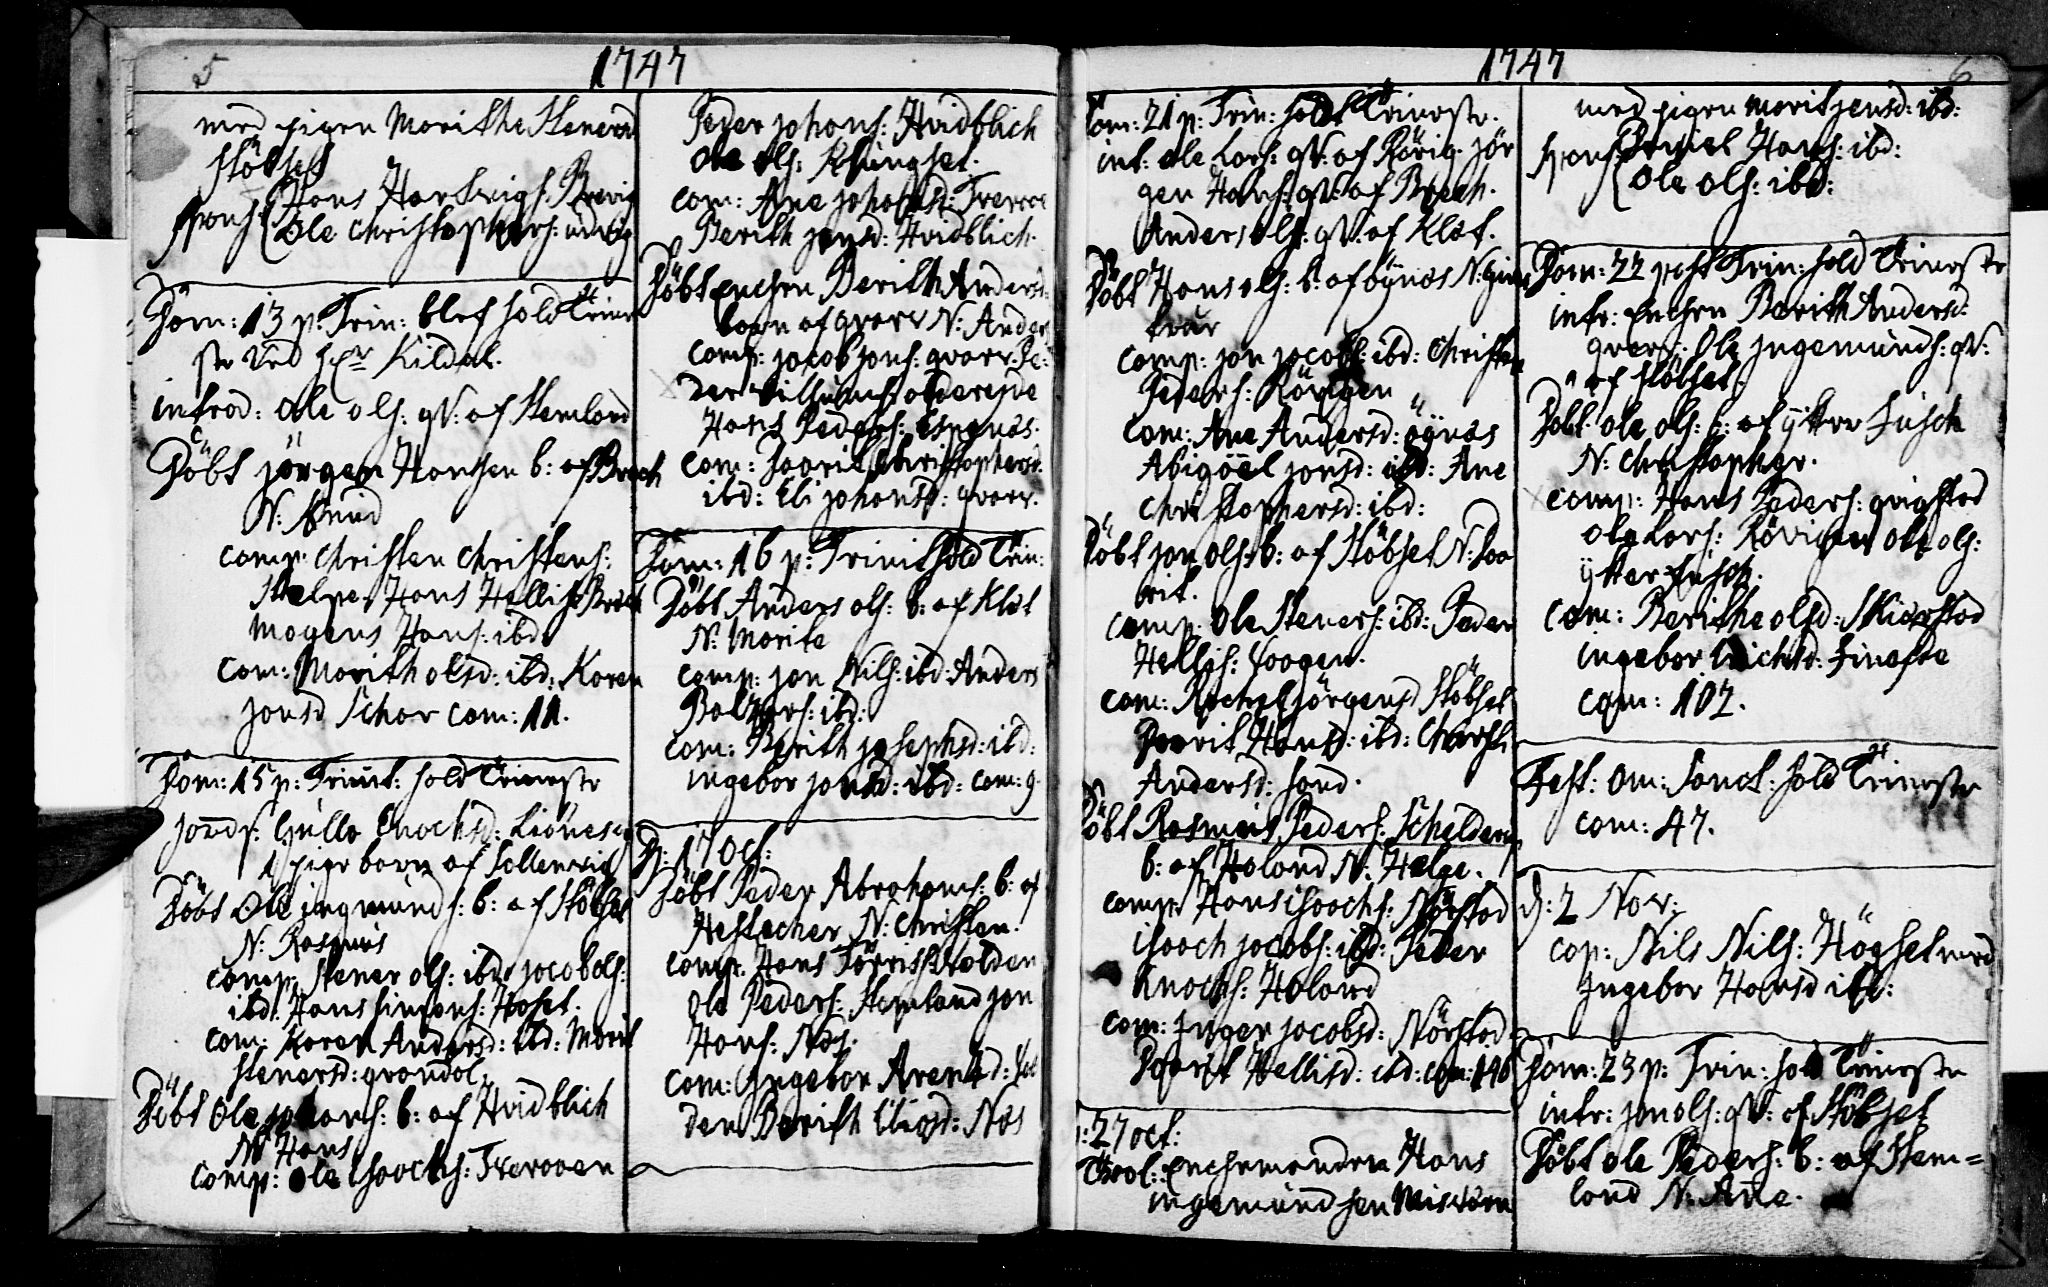 5
1747
med pigen Marithe Stenersd
Stöbset
spons: Hans Hartvigs: Brevig
Ole Christophers: udvig
Dom: 13 p: Trin: blef hold
ved Hr Kildal.
introd: Ole Ols: qv: af Stemland
Döbt Jörgen Hansen b: af Brech
N: Knud
comp: Christen Christens:
Hans Hellis: Brech
Mogens Hans: ibd:
com: Marith Olsd: ibd: Karen
Jonsd Schar com: 11.
Dom: 15 p: Trinit: hold
jordf: Gullo Enochsd: Liönes
1 pige barn af Sollenvig
Döbt Ole ingmunds: b: af Stöbset
N: Rasmus
comp: Stener Ols: ibd: Jacob Ols:
ibd: Hans Simons: Haset.
com: Karen Andersd: ibd: Marit
Stenersd: grandal
Döbt Ole Johans: b: af Hvidblich
N: Hans
comp: Ole Isaachs: Tverraaen
Peder Johans: Hvidblich
Ole Ols: Klungset.
com: Ane Johansd: Tveraae
Berith Jensd: Hvidblich.
Döbt Enchen Berith Andersd:
barn af qværv N: Anders
comp: Jacob Jons: qværv. Pe-
der Vilhelms: Oldereide
Hans Peders: Esenæs.
com: Zaarit Christophersd:
ibd: Eli Johansd: qværv.
Dom: 16 p: Trinit hold
Döbt Anders Ols: b: af Klæt
N: Marite
comp: Jon Nils: ibd: Anders
Baltzers: ibd:
com: Berith Josephsd: ibd:
ingebor Jonsd: ibd: com: 9.
D: 17 oct:
Döbt Peder Abrahams: b: af
Hestacher N: Christen.
comp: Hans
Ole Peders: Stemland Jon
Hans: Næs.
com: Ingebor Arentsd:
den Berith Eliasd: Næs
1747
6
Dom: 21 p: Trin: hold
int: Ole Lars: qv: af Rövig. Jör
gen Hans: qv: af Brech.
Anders Ols: qv: af Klæt.
Döbt Hans Ols: b: af öynæs
comp: Jon Jacobs: ibd: Christen
Peders: Rövigen
com: Ane Andersd: öynæs
Abigael Jonsd: ibd: Ane
Christophersd: ibd:
Döbt Jon Ols: b: af Stöbset N: Zaa
rit.
comp: Ole Steners: ibd: Peder
Hellis: Vaagen.
com: Rachel Jörgensd Stöbset
Zaarit Hansd: ibd:
Andersd: Sand.
Döbt Rasmus Peders: Schelderup
b: af Haland N: Helge.
comp: Hans Isaachs: Nörstad
Isaach Jacobs: ibd: Peder
Knochs: Haland
com: Inger Jacobsd: Nörstad
Zaarit Hellisd: ibd: com: 146
: 27 oct:
Trol: Enchemanden Hans
ingemundsen Misvær
med pigen Marit Jensd: ibd:
spons Daniel Hans: ibd:
Ole Ols: ibd:
Dom: 22 post Trin: hold
intr: Enchen Berith Andersd:
qværv. Ole Ingemunds: qv:
af Stöbset.
Döbt Ole Ols: b: af ytter
N: Christopher.
comp: Hans Peders: qvigstad
Ole Lars: Rövigen Ole Ols:
ytter
com: Berithe Olsd: Skiærstad
ingebor Finæste
com: 102.
Fest: Om: Sanct: hold
com: 47.
D: 2 Nov:
cop: Nils Nils: Högset med
Ingebor Hansd ibd:
Dom: 23 p: Trin: hold
intr: Jon Ols: qv: af Stöbset
Döbt Ole Peders: b: af Stem=
land N: Ane.